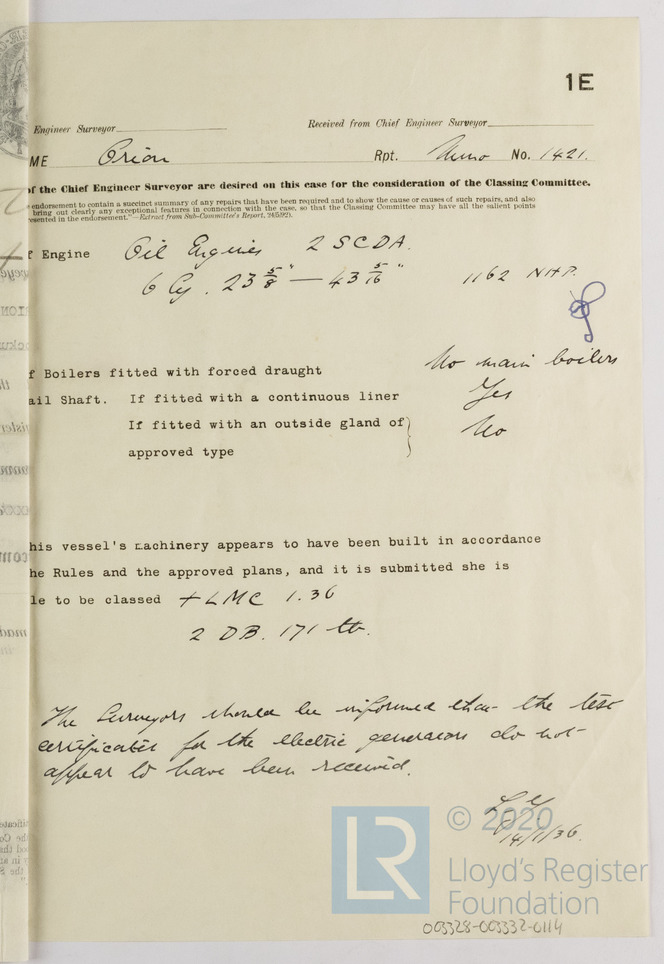 1E
Engineer Surveyor
Received from Chief Engineer Surveyor
ME Orion Rpt. No. 1421.
of the Chief Engineer Surveyor are desired on this case for the consideration of the Classing Committee.
endorsement to contain a succinct summary of any repairs that have been required and to show the cause or causes of such repairs, and also
bring out clearly any exceptional features in connection with the case, so that the Classing Committee may have all the salient points
resented in the endorsement."—Extract from Sub-Committee's Report, 24/5/92).
f Engine Oil Engines 2 SCDA.
6 Cy. 23 5/8" — 43 5/16" 1162 NHP.
No main boilers
f Boilers fitted with forced draught
ail Shaft. If fitted with a continuous liner Yes
If fitted with an outside gland of No
approved type
his vessel's machinery appears to have been built in accordance
he Rules and the approved plans, and it is submitted she is
le to be classed + LMC 1.36
2 DB. 171 lb.
The Surveyors should be informed that the test
certificates for the electric generators do not
appear to have been received.
14/1/36.
LR
© 2020
Lloyd's Register
Foundation
003328-003332-0114